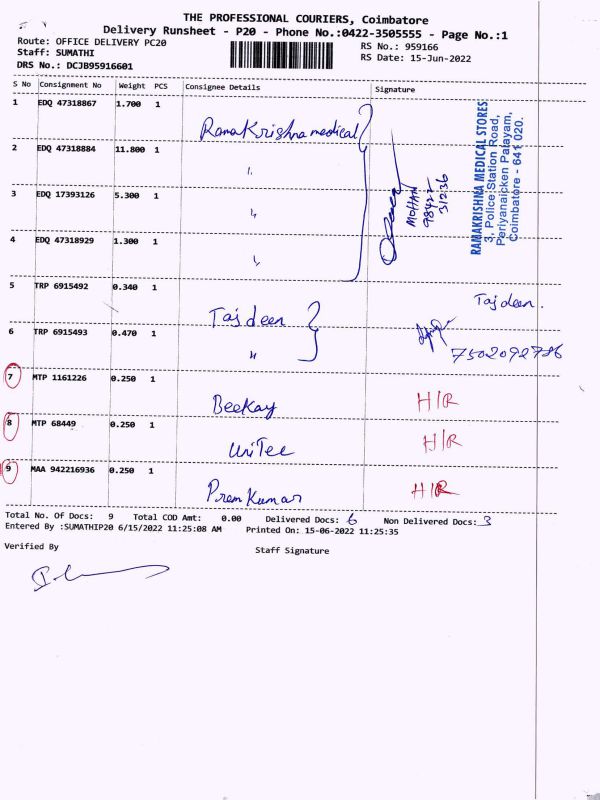 THE PROFESSIONAL COURIERS, Coimbatore
Delivery Runsheet - P20 - Phone No.:0422-3505555 - Page No.:1
Route: OFFICE DELIVERY PC20
RS No.: 959166
Staff: SUMATHI
RS Date: 15-Jun-2022
DRS No.: DCJB95916601
S No Consignment No Weight PCS Consignee Details Signature
1 EDQ 47318867 1.700 1 Ramakrishna medical
2 EDQ 47318884 11.800 1 "
3 EDQ 17393126 5.300 1 "
4 EDQ 47318929 1.300 1 "
MOHAN
98422
31236
RAMAKRISHNA MEDICAL STORES
3, Police Station Road,
Periyanaicken Palayam,
Coimbatore - 641 020.
5 TRP 6915492 0.340 1 Tajdeen Tajdeen.
6 TRP 6915493 0.470 1 " 7502092786
7 MTP 1161226 0.250 1 Beekay H/R
8 MTP 68449 0.250 1 UniTee H/R
9 MAA 942216936 0.250 1 Prem Kumar H/R
Total No. Of Docs: 9 Total COD Amt: 0.00 Delivered Docs: 6 Non Delivered Docs: 3
Entered By :SUMATHIP20 6/15/2022 11:25:08 AM Printed On: 15-06-2022 11:25:35
Verified By Staff Signature